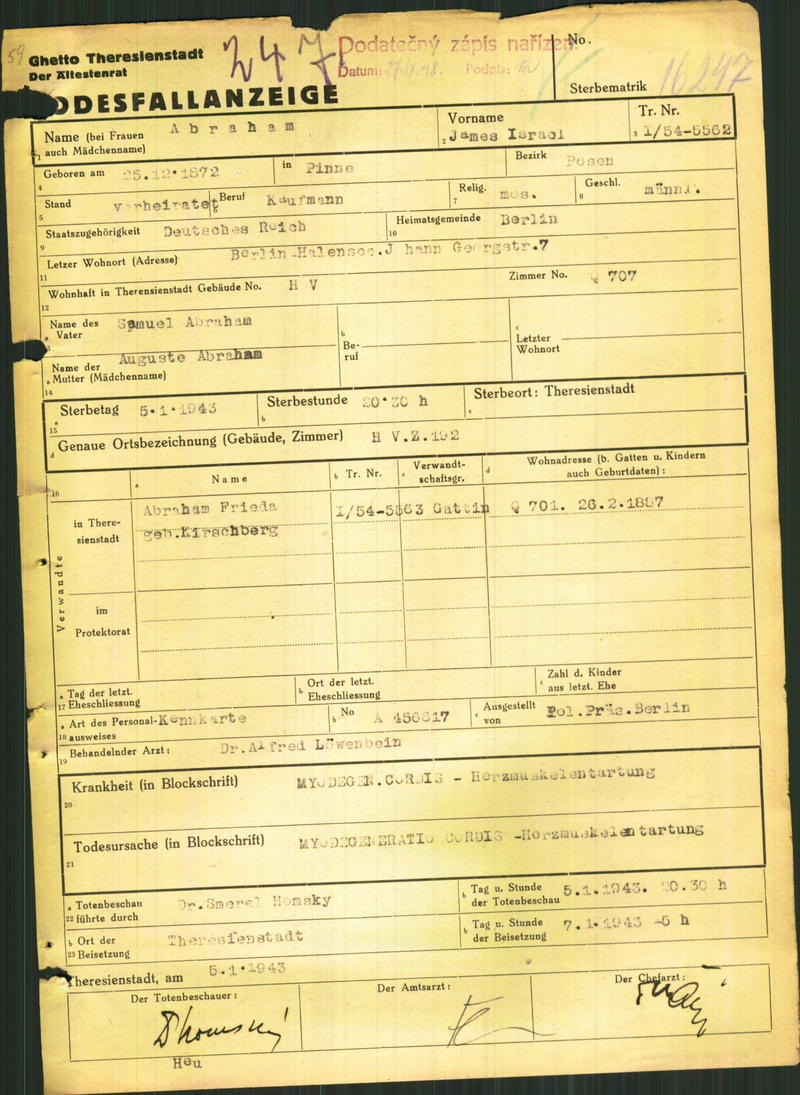 59
Ghetto Theresienstadt
Der Ältestenrat
247
Dodatečný zápis nařízen.
Datum: 27.IX.48. Podpis:
No.
Sterbematrik 16247
ODESFALLANZEIGE
Name (bei Frauen auch Mädchenname) Abraham
1
Vorname
2 James Israel
Tr. Nr.
3 I/54-5562
Geboren am 25.12.1872 in Pinne Bezirk Posen
4
Stand verheiratet Beruf Kaufmann Relig. mos. Geschl. männl.
5 6 7 8
Staatszugehörigkeit Deutsches Reich Heimatsgemeinde Berlin
9 10
Letzer Wohnort (Adresse) Berlin-Halensee.J hann Georgstr.7
11
Wohnhaft in Therensienstadt Gebäude No. H V Zimmer No. Q 707
12
Name des Vater Samuel Abraham
a
b Beruf
c Letzter Wohnort
Name der Mutter (Mädchenname) Auguste Abraham
a
14
Sterbetag 5.1.1943 Sterbestunde 20.30 h Sterbeort: Theresienstadt
a b c
15
d Genaue Ortsbezeichnung (Gebäude, Zimmer) H V.Z.192
16
a Name
b Tr. Nr.
c Verwandtschaftsgr.
d Wohnadresse (b. Gatten u. Kindern auch Geburtdaten):
Verwandte
in Theresienstadt
Abraham Frieda I/54-5563 Gattin Q 701. 26.2.1887
geb.Kirschberg
im Protektorat
a Tag der letzt. Eheschliessung
17
b Ort der letzt. Eheschliessung
c Zahl d. Kinder aus letzt. Ehe
a Art des Personalausweises Kennkarte
18
b No A 456617
c Ausgestellt von Pol.Präs.Berlin
Behandelnder Arzt: Dr.Alfred Löwenbein
19
Krankheit (in Blockschrift) MYODEGEN.CORDIS - Herzmuskelentartung
20
Todesursache (in Blockschrift) MYODEGENERATIO CORDIS -Herzmuskelentartung
21
a Totenbeschau führte durch Dr.Smerel Homsky
22
b Tag u. Stunde der Totenbeschau 5.1.1943. 20.30 h
b Ort der Beisetzung Theresienstadt
23
b Tag u. Stunde der Beisetzung 7.1.1943 -5 h
Theresienstadt, am 5.1.1943
Der Totenbeschauer:
Der Amtsarzt:
Der Chefarzt:
Heu